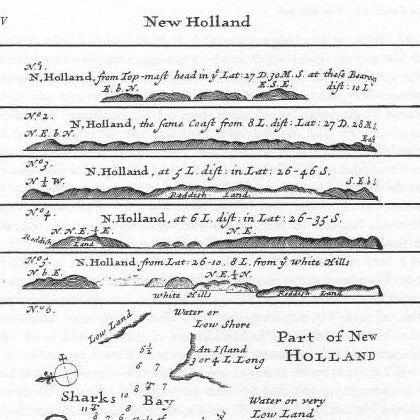 V
New Holland
N.º1.
N, Holland, from Top-mast head in yͤ Lat: 27 D. 30 M. S. at these Bearings
E. b. N.
E. S. E.
dist: 10 L.ˢ
N.º 2.
N, Holland, the same Coast from 8 L. dist: Lat: 27 D. 28 M. S.
N. E. b N.
East
N.º3.
N, Holland, at 5 L. dist: in Lat: 26-46 S.
N ½ W.
S. E. b s
Reddish Land
N.º4.
N, Holland, at 6 L. dist: in Lat: 26-35 S.
Reddish
Land
N. N. E. ½ E.
N. E.
N.º5.
N, Holland, from Lat: 26-10. 8 L. from yͤ White Hills
N. b. E.
N. E. ½ N.
White Hills
Reddish Land
N.º 6.
Low Land
Water or
Low Shore
Part of New
HOLLAND
An Island
3 or 4 L. Long
5½
6 7
8 7
Sharks Bay
Water or very
Low Land